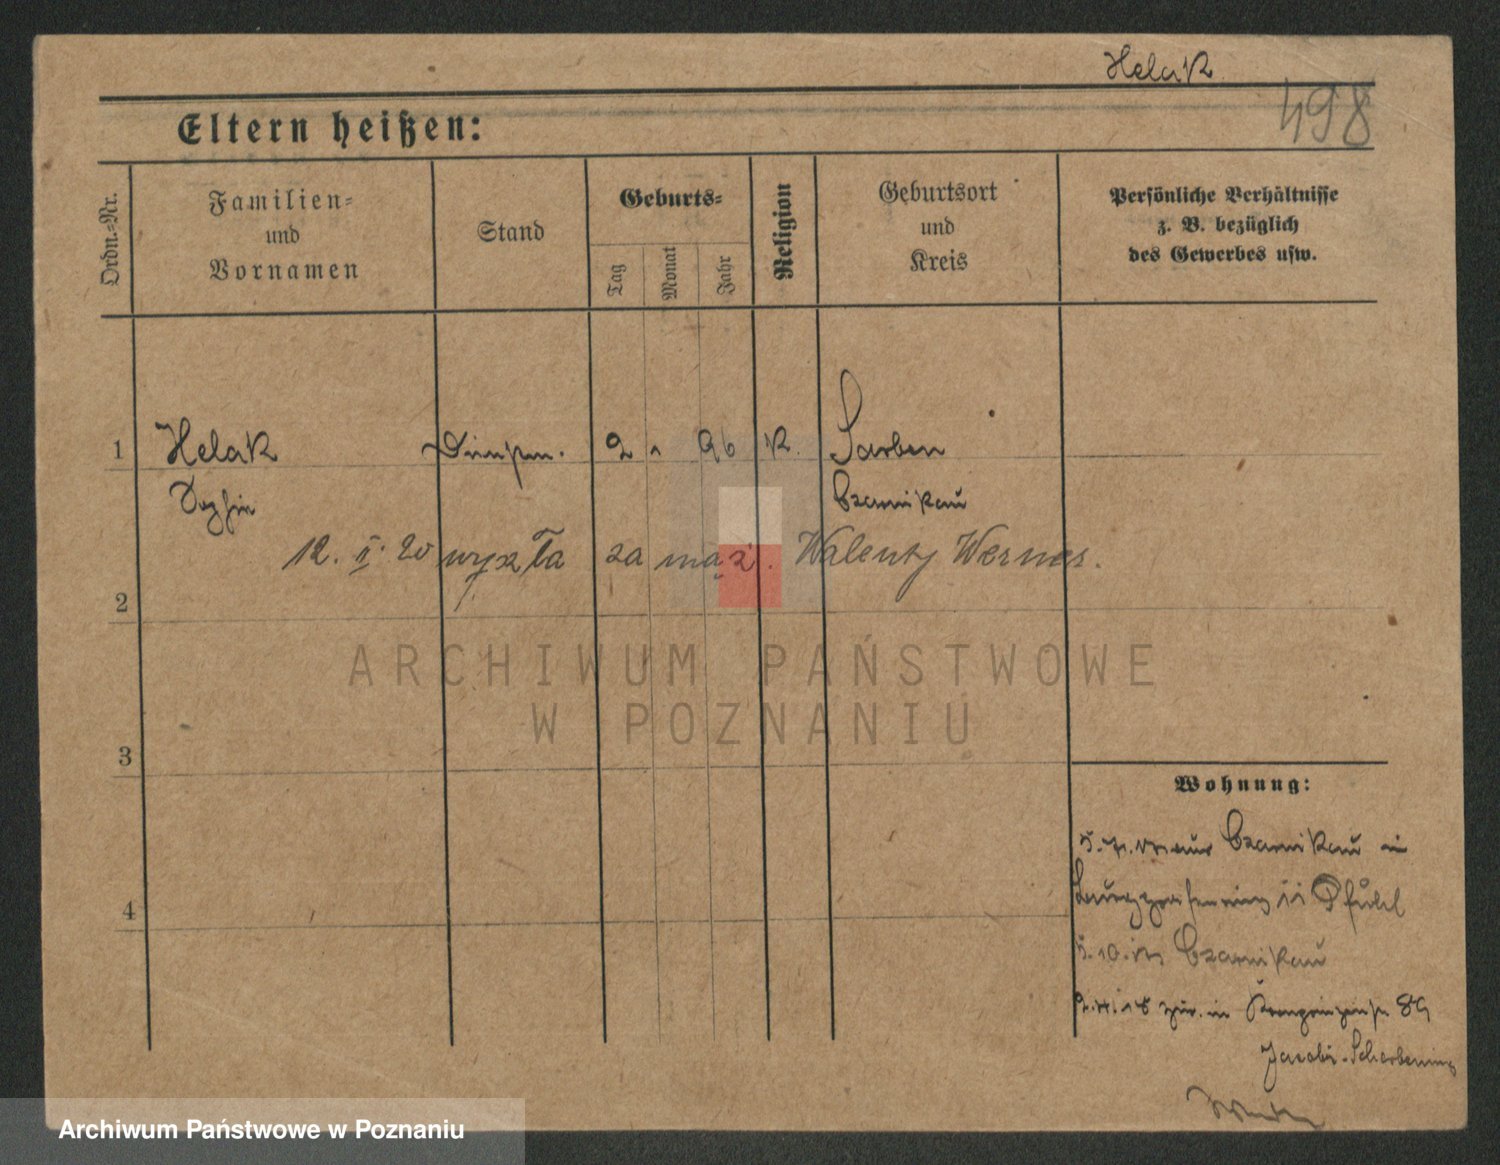 Helak
498
Eltern heißen:
Ordn.-Nr.
Familien-
und
Vornamen
Stand
Geburts-
Tag
Monat
Jahr
Religion
Geburtsort
und
Kreis
Persönliche Verhältnisse
z. B. bezüglich
des Gewerbes usw.
1 Helak 2 96 K. Sarben
Sophie Czarnikau
12. II. 20 wyszła za mąż. Walenty Werner.
2
ARCHIWUM PAŃSTWOWE
W POZNANIU
3
4
Wohnung:
Czarnikau in
11 Pfuhl
Czarnikau
in Kronprinzenstr 89
Archiwum Państwowe w Poznaniu